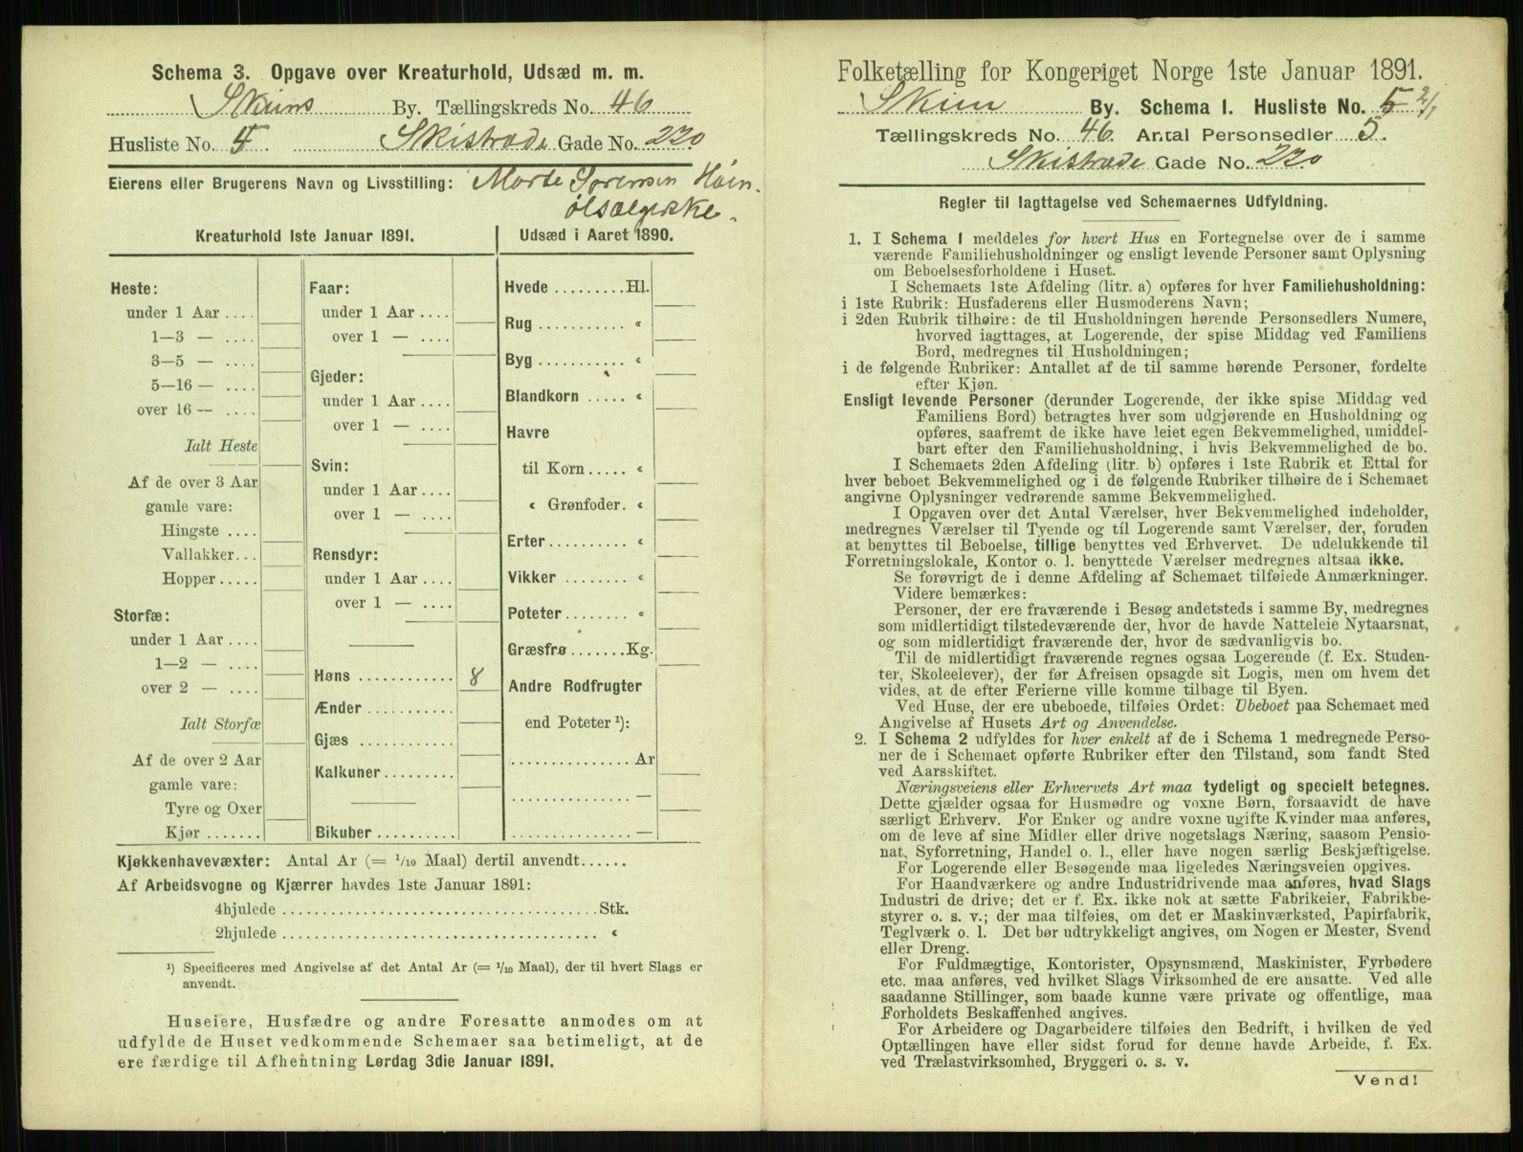 Schema 3. Opgave over Kreaturhold, Udsæd m. m.
Skiens By. Tællingskreds No. 46
Husliste No. 5. Gade No. 220
Eierens eller Brugerens Navn og Livsstilling: Marte Sørensen
ølsælgerske.
Kreaturhold 1ste Januar 1891.
Heste:
under 1 Aar ....
1—3 — ....
3—5 — ....
5—16 — ....
over 16 — ....
Ialt Heste
Af de over 3 Aar
gamle vare:
Hingste ....
Vallakker...
Hopper .....
Storfæ:
under 1 Aar ....
1—2 — ....
over 2 — ....
Ialt Storfæ
Af de over 2 Aar
gamle vare:
Tyre og Oxer
Kjør .......
Faar:
under 1 Aar ....
over 1 — ....
Gjeder:
under 1 Aar ....
over 1 — ....
Svin:
under 1 Aar ....
over 1 — ....
Rensdyr:
under 1 Aar ....
over 1 — ....
Høns ............ 8
Ænder ...........
Gjæs ............
Kalkuner ........
Bikuber ..........
Udsæd i Aaret 1890.
Hvede .........Hl.
Rug ........... «
Byg ........... «
Blandkorn ..... «
Havre
til Korn ..... «
« Grønfoder. «
Erter.......... «
Vikker ........ «
Poteter ........ «
Græsfrø .......Kg.
Andre Rodfrugter
end Poteter ¹):
............... Ar
............... —
............... —
Kjøkkenhavevæxter: Antal Ar (= ¹/₁₀ Maal) dertil anvendt......
Af Arbeidsvogne og Kjærrer havdes 1ste Januar 1891:
4hjulede ....................................... Stk.
2hjulede ....................................... «
¹) Specificeres med Angivelse af det Antal Ar (= ¹/₁₀ Maal), der til hvert Slags er
anvendt.
Huseiere, Husfædre og andre Foresatte anmodes om at
udfylde de Huset vedkommende Schemaer saa betimeligt, at de
ere færdige til Afhentning Lørdag 3die Januar 1891.
Folketælling for Kongeriget Norge 1ste Januar 1891.
Skien By. Schema I. Husliste No. 5 2/1
Tællingskreds No. 46. Antal Personsedler 5.
Gade No. 220
Regler til Iagttagelse ved Schemaernes Udfyldning.
1. I Schema 1 meddeles for hvert Hus en Fortegnelse over de i samme
værende Familiehusholdninger og ensligt levende Personer samt Oplysning
om Beboelsesforholdene i Huset.
I Schemaets 1ste Afdeling (litr. a) opføres for hver Familiehusholdning:
i 1ste Rubrik: Husfaderens eller Husmoderens Navn;
i 2den Rubrik tilhøire: de til Husholdningen hørende Personsedlers Numere,
hvorved iagttages, at Logerende, der spise Middag ved Familiens
Bord, medregnes til Husholdningen;
i de følgende Rubriker: Antallet af de til samme hørende Personer, fordelte
efter Kjøn.
Ensligt levende Personer (derunder Logerende, der ikke spise Middag ved
Familiens Bord) betragtes hver som udgjørende en Husholdning og
opføres, saafremt de ikke have leiet egen Bekvemmelighed, umiddel-
bart efter den Familiehusholdning, i hvis Bekvemmelighed de bo.
I Schemaets 2den Afdeling (litr. b) opføres i 1ste Rubrik et Ettal for
hver beboet Bekvemmelighed og i de følgende Rubriker tilhøire de i Schemaet
angivne Oplysninger vedrørende samme Bekvemmelighed.
I Opgaven over det Antal Værelser, hver Bekvemmelighed indeholder,
medregnes Værelser til Tyende og til Logerende samt Værelser, der, foruden
at benyttes til Beboelse, tillige benyttes ved Erhvervet. De udelukkende til
Forretningslokale, Kontor o. l. benyttede Værelser medregnes altsaa ikke.
Se forøvrigt de i denne Afdeling af Schemaet tilføiede Anmærkninger.
Videre bemærkes:
Personer, der ere fraværende i Besøg andetsteds i samme By, medregnes
som midlertidigt tilstedeværende der, hvor de havde Natteleie Nytaarsnat,
og som midlertidigt fraværende der, hvor de sædvanligvis bo.
Til de midlertidigt fraværende regnes ogsaa Logerende (f. Ex. Studen-
ter, Skoleelever), der før Afreisen opsagde sit Logis, men om hvem det
vides, at de efter Ferierne ville komme tilbage til Byen.
Ved Huse, der ere ubeboede, tilføies Ordet: Ubeboet paa Schemaet med
Angivelse af Husets Art og Anvendelse.
2. I Schema 2 udfyldes for hver enkelt af de i Schema 1 medregnede Perso-
ner de i Schemaet opførte Rubriker efter den Tilstand, som fandt Sted
ved Aarsskiftet.
Næringsveiens eller Erhvervets Art maa tydeligt og specielt betegnes.
Dette gjælder ogsaa for Husmødre og voxne Børn, forsaavidt de have
særligt Erhverv. For Enker og andre voxne ugifte Kvinder maa anføres,
om de leve af sine Midler eller drive nogetslags Næring, saasom Pensio-
nat, Syforretning, Handel o. l., eller have nogen særlig Beskjæftigelse.
For Logerende eller Besøgende maa ligeledes Næringsveien opgives.
For Haandværkere og andre Industridrivende maa anføres, hvad Slags
Industri de drive; det er f. Ex. ikke nok at sætte Fabrikeier, Fabrikbe-
styrer o. s. v.; der maa tilføies, om det er Maskinværksted, Papirfabrik,
Teglværk o. l. Det bør udtrykkeligt angives, om Nogen er Mester, Svend
eller Dreng.
For Fuldmægtige, Kontorister, Opsynsmænd, Maskinister, Fyrbødere
etc. maa anføres, ved hvilket Slags Virksomhed de ere ansatte. Ved alle
saadanne Stillinger, som baade kunne være private og offentlige, maa
Forholdets Beskaffenhed angives.
For Arbeidere og Dagarbeidere tilføies den Bedrift, i hvilken de ved
Optællingen have eller sidst forud for denne havde Arbeide, f. Ex.
ved Trælastvirksomhed, Bryggeri o. s. v.
Vend!